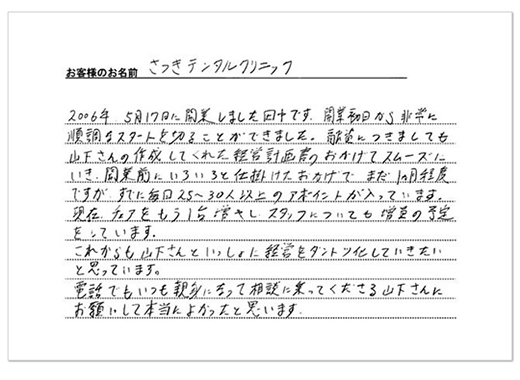 お客様のお名前 さつきデンタルクリニック
2006年 5月17日に開業しました田中です。開業初日から非常に
順調なスタートを切ることができました。融資につきましても
山下さんの作成してくれた経営計画書のおかげでスムーズに
いき、開業前にいろいろと仕掛けたおかげで まだ1ヵ月程度
ですが、すでに毎日25〜30人以上のアポイントが入っています。
現在、チェアをもう1台増やし、スタッフについても増員の予定
をしています。
これからも山下さんといっしょに経営をダントツ化していきたい
と思っています。
電話でもいつも親身になって相談に乗ってくださる山下さんに
お願いして本当によかったと思います。